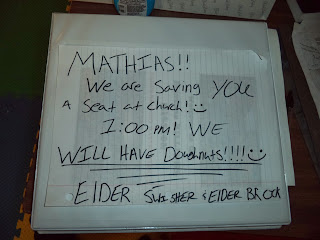 MATHIAS!!
We are Saving YOU
A Seat at Church! :)
1:00 PM! WE
WILL HAVE Doughnuts!!!! :)
ELDER SWISHER & ELDER BROCK